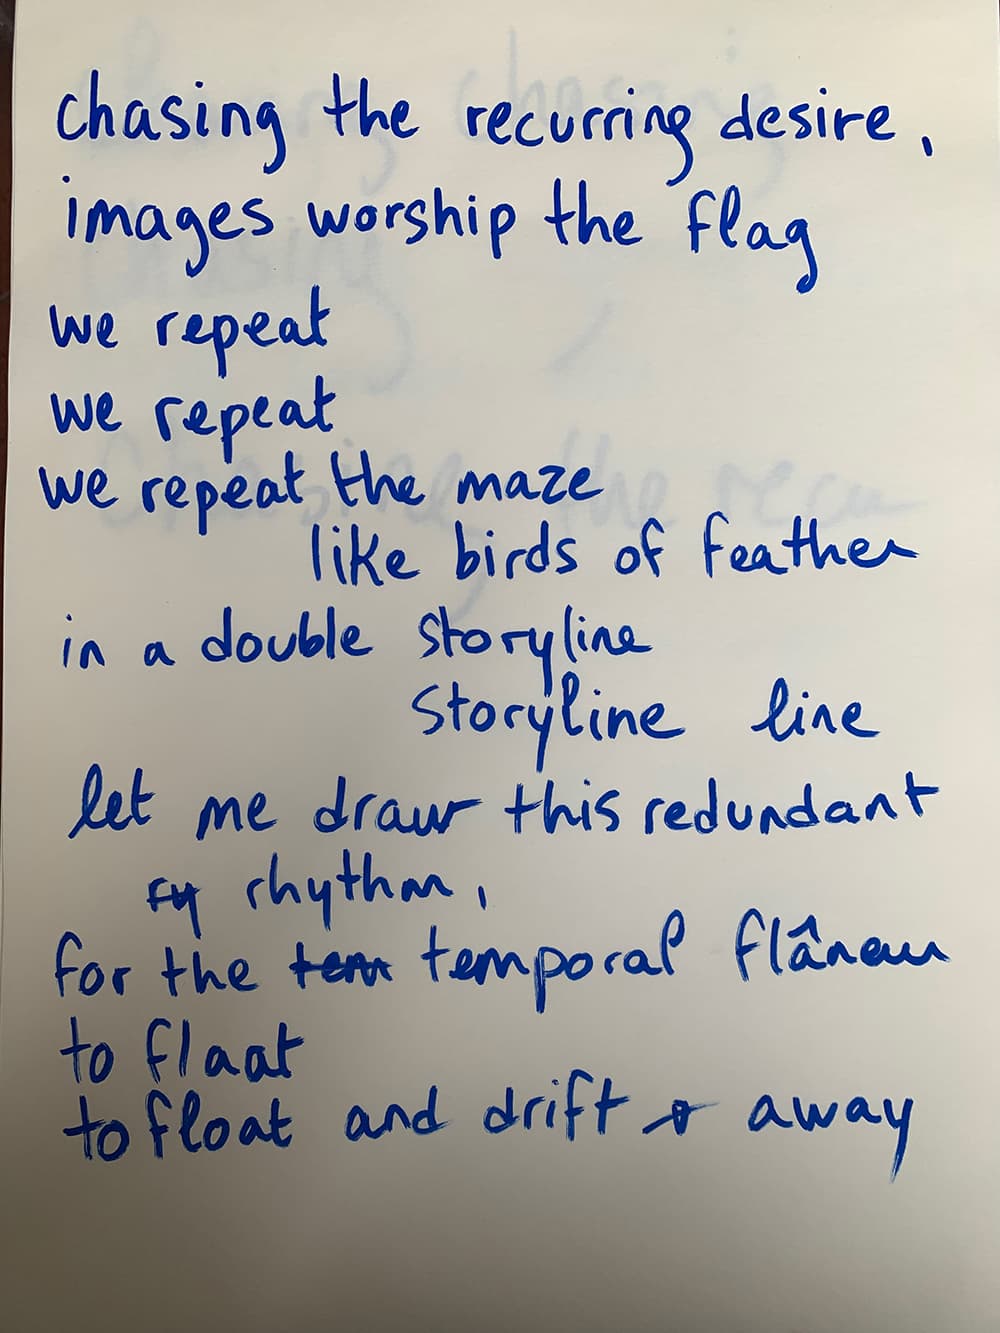 chasing the recurring desire,
images worship the flag
we repeat
we repeat
we repeat the maze
like birds of feather
in a double storyline
storyline line
let me draw this redundant
rhythm,
for the tem temporal flâneur
to flaat
to float and drift away